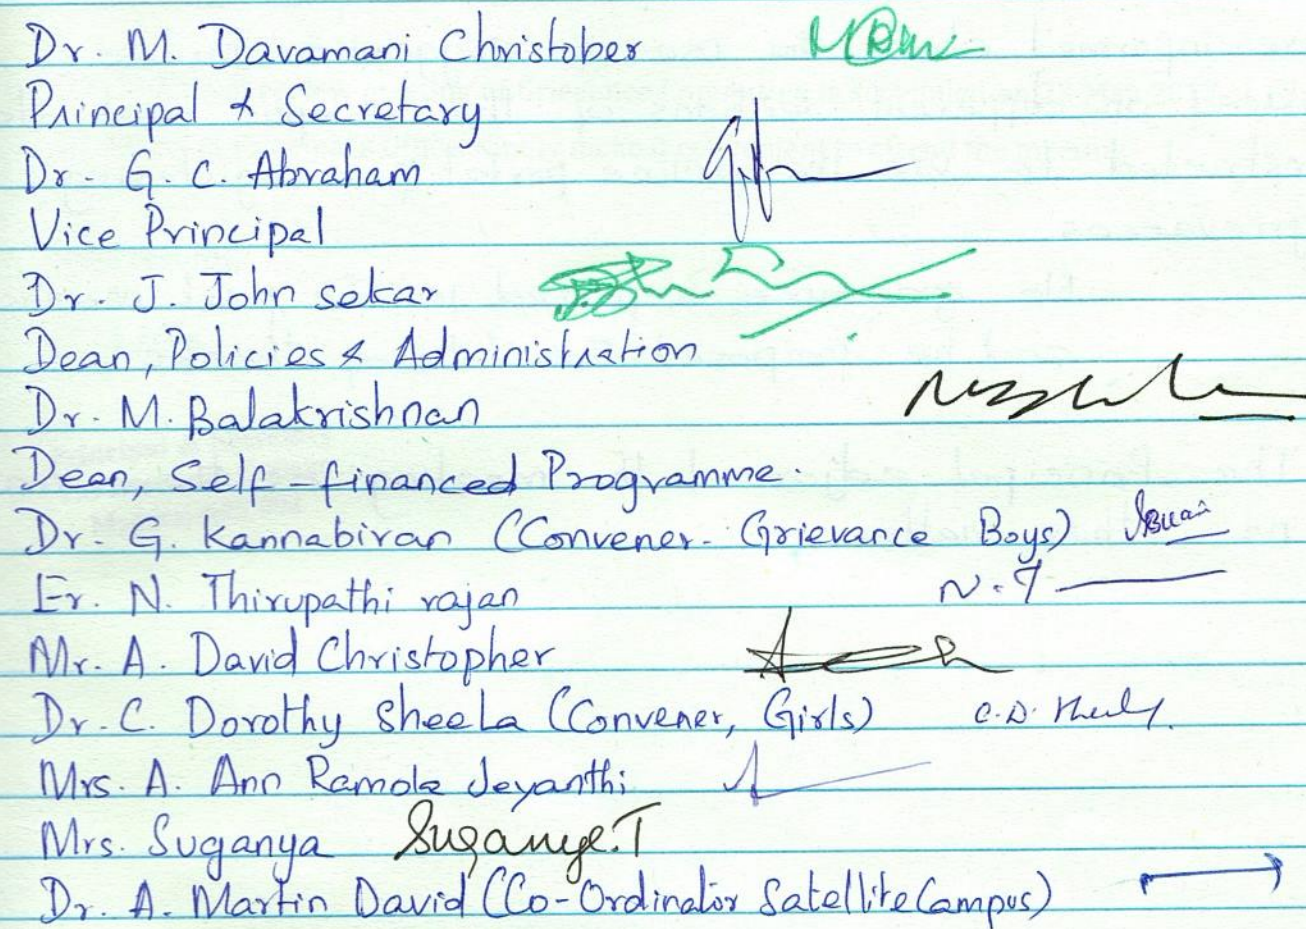 Dr. M. Davamani Christober
Principal & Secretary
Dr. G. C. Abraham
Vice Principal
Dr. J. John sekar
Dean, Policies & Administration
Dr. M. Balakrishnan
Dean, Self-financed Programme.
Dr. G. Kannabiran (Convener. Grievance Boys)
Er. N. Thirupathi rajan N. T
Mr. A. David Christopher
Dr. C. Dorothy Sheela (Convener, Girls) C. D. Sheela
Mrs. A. Ann Ramola Jeyanthi
Mrs. Suganya Suganya.T
Dr. A. Martin David (Co-Ordinator Satellite Campus)